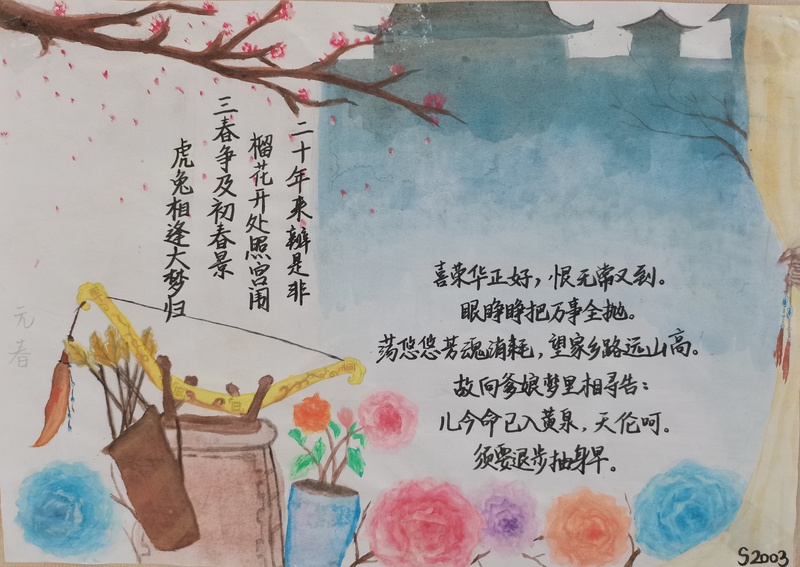 二十年来辨是非
榴花开处照宫闱
三春争及初春景
虎兔相逢大梦归
元春
喜荣华正好，恨无常又到。
眼睁睁把万事全抛。
荡悠悠芳魂消耗，望家乡路远山高。
故向爹娘梦里相寻告：
儿今命已入黄泉，天伦呵。
须要退步抽身早。
S2003